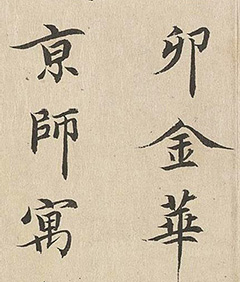 卯金華
京師寓